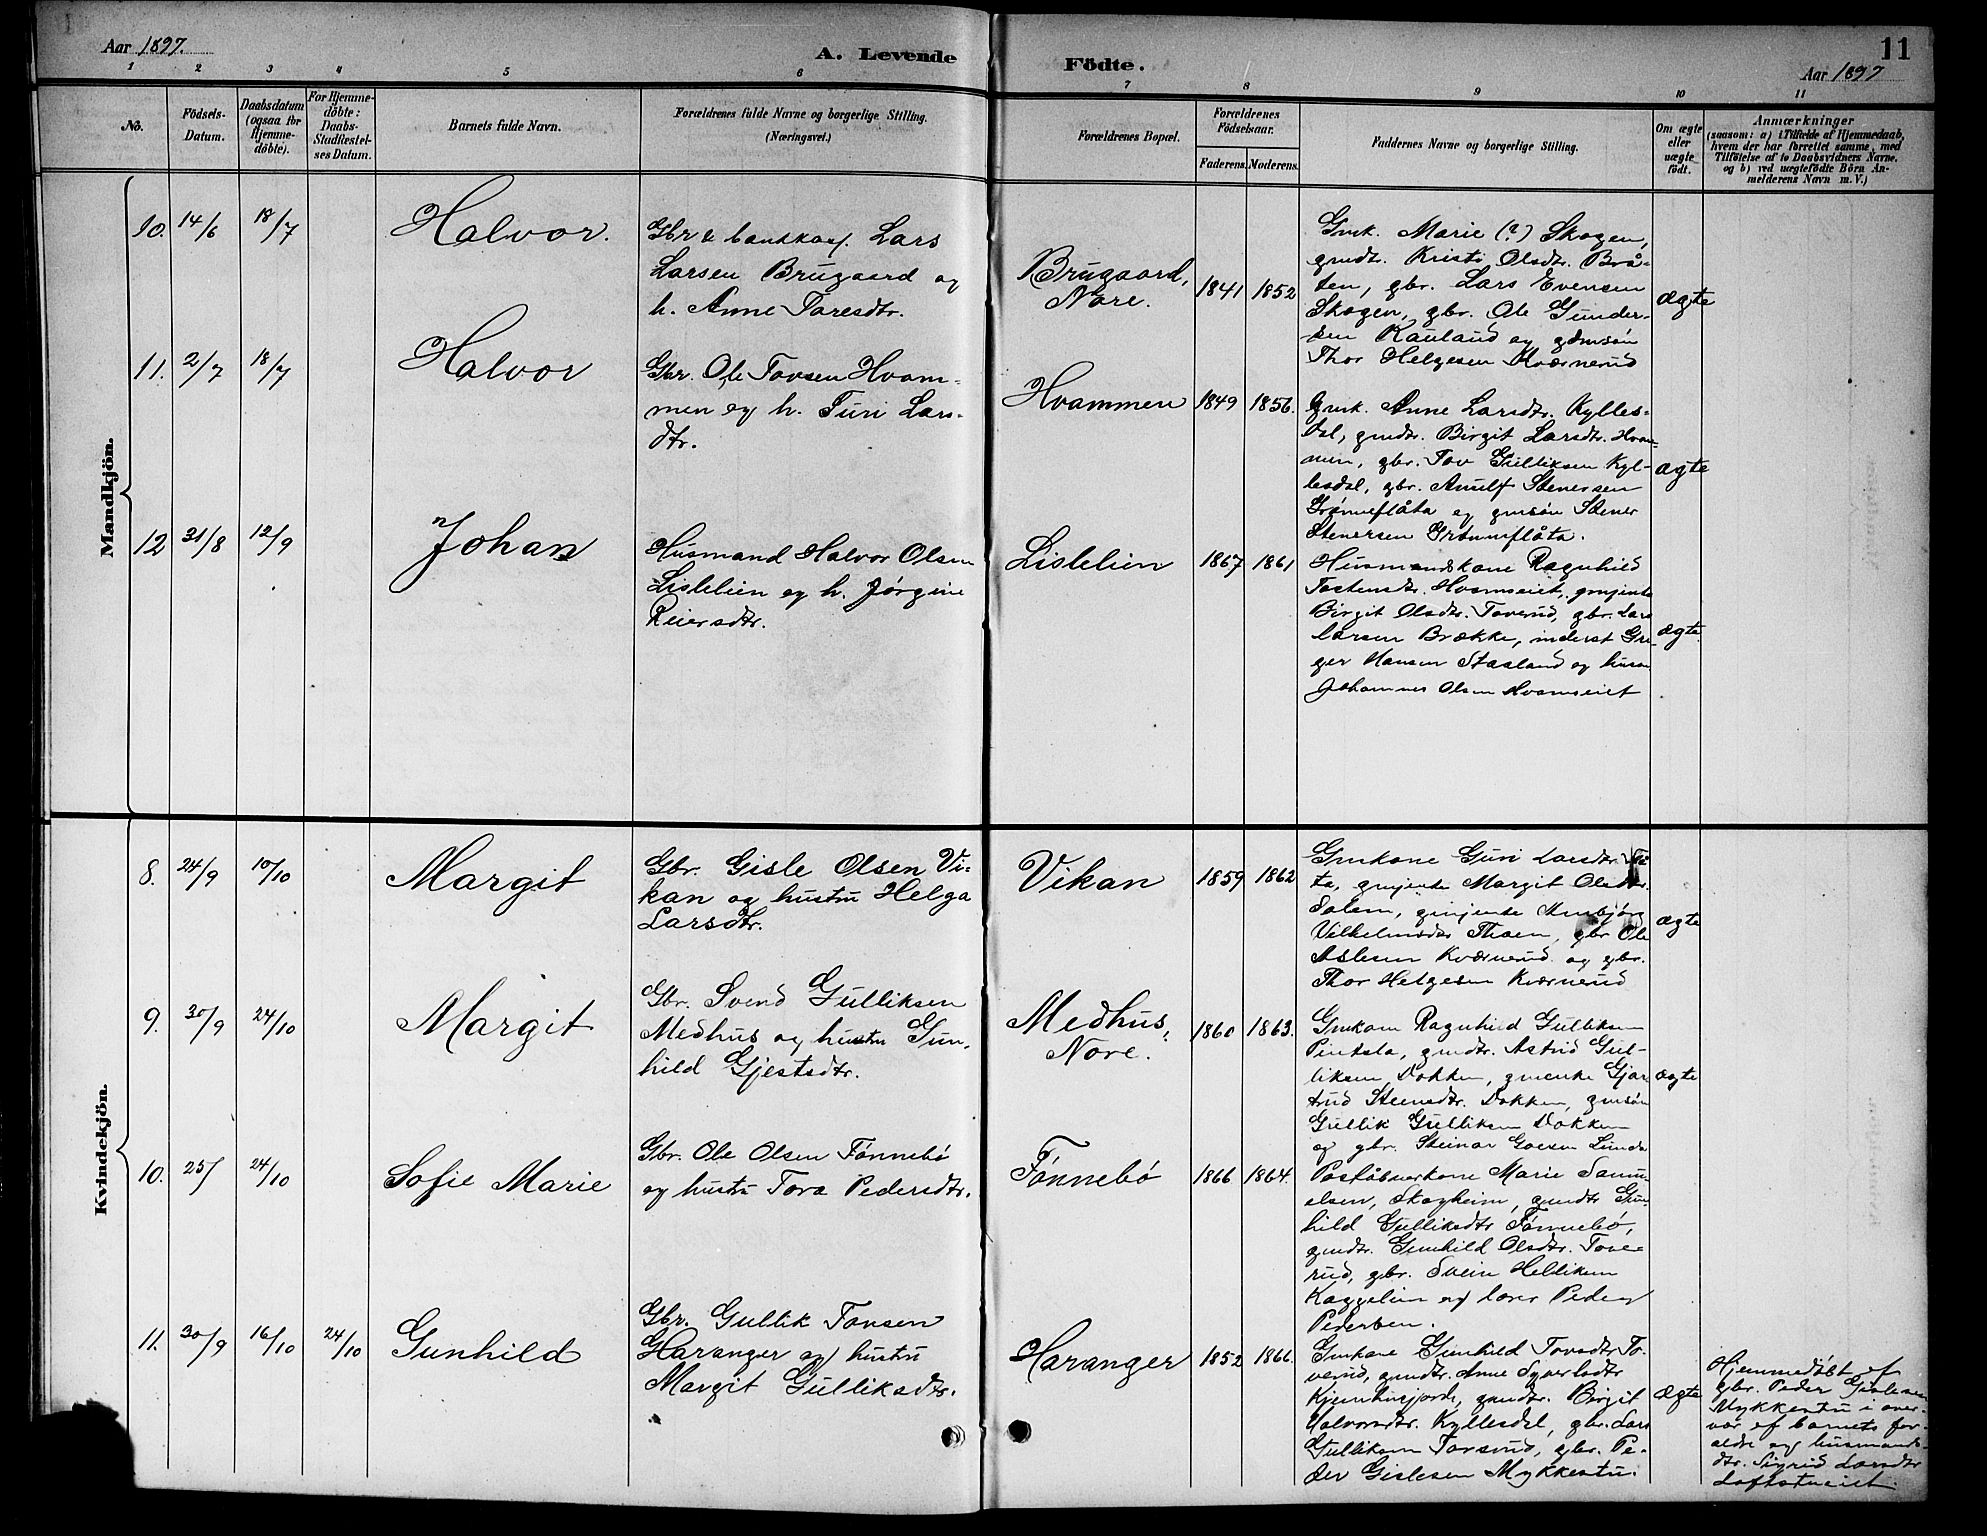 Aar 1897.
A. Levende
Födte.
11
Aar 1897
1 2 3 4 5 6 7 8 9 10 11
No.
Födsels-
Datum.
Daabsdatum
(ogsaa for
Hjemme-
döbte).
For Hjemme-
döbte:
Daabs-
Stadfæstel-
ses Datum.
Barnets fulde Navn.
Forældrenes fulde Navne og borgerlige Stilling.
(Næringsvei.)
Forældrenes Bopæl.
Forældrenes
Födselsaar.
Faderens. Moderens.
Faddernes Navne og borgerlige Stilling.
Om ægte
eller
uægte
født.
Anmærkninger
(saasom: a) i Tilfælde af Hjemmedaab,
hvem der har forrettet samme, med
Tilföielse af to Daabsvidners Navne.
og b) ved uægtefödte Börn An-
melderens Navn m. V.)
Mandkjön.
10. 14/6 18/7
Halvor.
Gbr & Lars
Larsen Brugaard og
h. Anne Toresdtr.
Brugaard,
Nore.
1841 1852
Gmk. Marie (?) Skogen,
gmdtr. Kristi Olsdtr. Brå-
ten, gbr. Lars Evensen
Skogen, gbr. Ole Gunder-
sen Rauland og gdmsøn
Thor Helgesen Kværnerud
ægte
11. 2/7 18/7
Halvor
Gbr. Ole Tovsen Hvam-
men og h. Turi Lars-
dtr.
Hvammen
1849 1856.
Gmk. Anne Larsdtr. Kylles-
dal, gmdtr. Birgit Larsdtr. Hvam-
men, gbr. Tov Gulliksen Kyl-
lesdal, gbr. Stenersen
Grønneflåta og gmsøn Stener
Stenersen Grønneflåta.
ægte
12 31/8 12/9
Johan
Husmand Halvor Olsen
Lislelien og h. Jørgine
Reiersdtr.
Lislelien
1867 1861
Husmandskone Ragnhild
Tostensdtr. Hvamseiet, gmjente
Birgit Olsdtr. Toverud, gbr. Lars
Larsen Brække, inderst Gre-
ger Hansen Staaland og husm
Johannes Olsen Hvamseiet
ægte.
Kvindekjön.
8. 24/9 10/10
Margit
Gbr. Gisle Olsen Vi-
kan og hustru Helga
Larsdtr.
Vikan
1859 1862
Gmkone Guri Larsdtr.
ta, gmjente Margit Olsdtr.
gmjente Ambjørg
Vilhelmsdtr Thoen, gbr Ole
Aslesen Kværnerud og gbr.
Thor Helgesen Kværnerud
ægte
9. 30/9 24/10
Margit
Gbr. Svend Gulliksen
Medhus og hustru Gun-
hild Gjestsdtr.
Medhus,
Nore.
1860 1863.
Gmkone Ragnhild Gulliksen
gmdtr. Astrid Gul-
liksen Dokken, gmenke Gjær
trud Steensdtr. Dokken, gmsøn
Gullik Gulliksen Dokken
og gbr. Steinar
ægte
10. 25/ 24/10
Sofie Marie
Gbr. Ole Olsen Fønnebø
og hustru Tora Pedersdtr.
Fønnebø
1866 1864.
Poståbnerkone Marie Samu
elsen, Skogheim, gmdtr Gun
hild Gulliksdtr Fønnebø,
gmdtr. Gunhild Olsdtr. Tove-
rud, gbr. Svein Helliksen
Kaggelien og lærer Peder
Pedersen.
11. 30/9 16/10 24/10
Gunhild
Gbr. Gullik Tovsen
Haranger og hustru
Margit Gulliksdtr.
Haranger
1852 1866.
Gmkone Gunhild Tovsdtr To-
verud, gmdtr. Anne Syverlsdtr
gmdtr. Birgit
Halvorsdtr. Kyllesdal, gbr. Lars
Gulliksen Torsrud, gbr. Pe-
der Gislesen Mykkestu.
ægte
Hjemmedøbt af
gbr. Peder Gislesen
Mykkestu i over-
vær af barnets for-
ældre og husmands-
dtr. Sigrid Larsdtr
Loftstueiet.